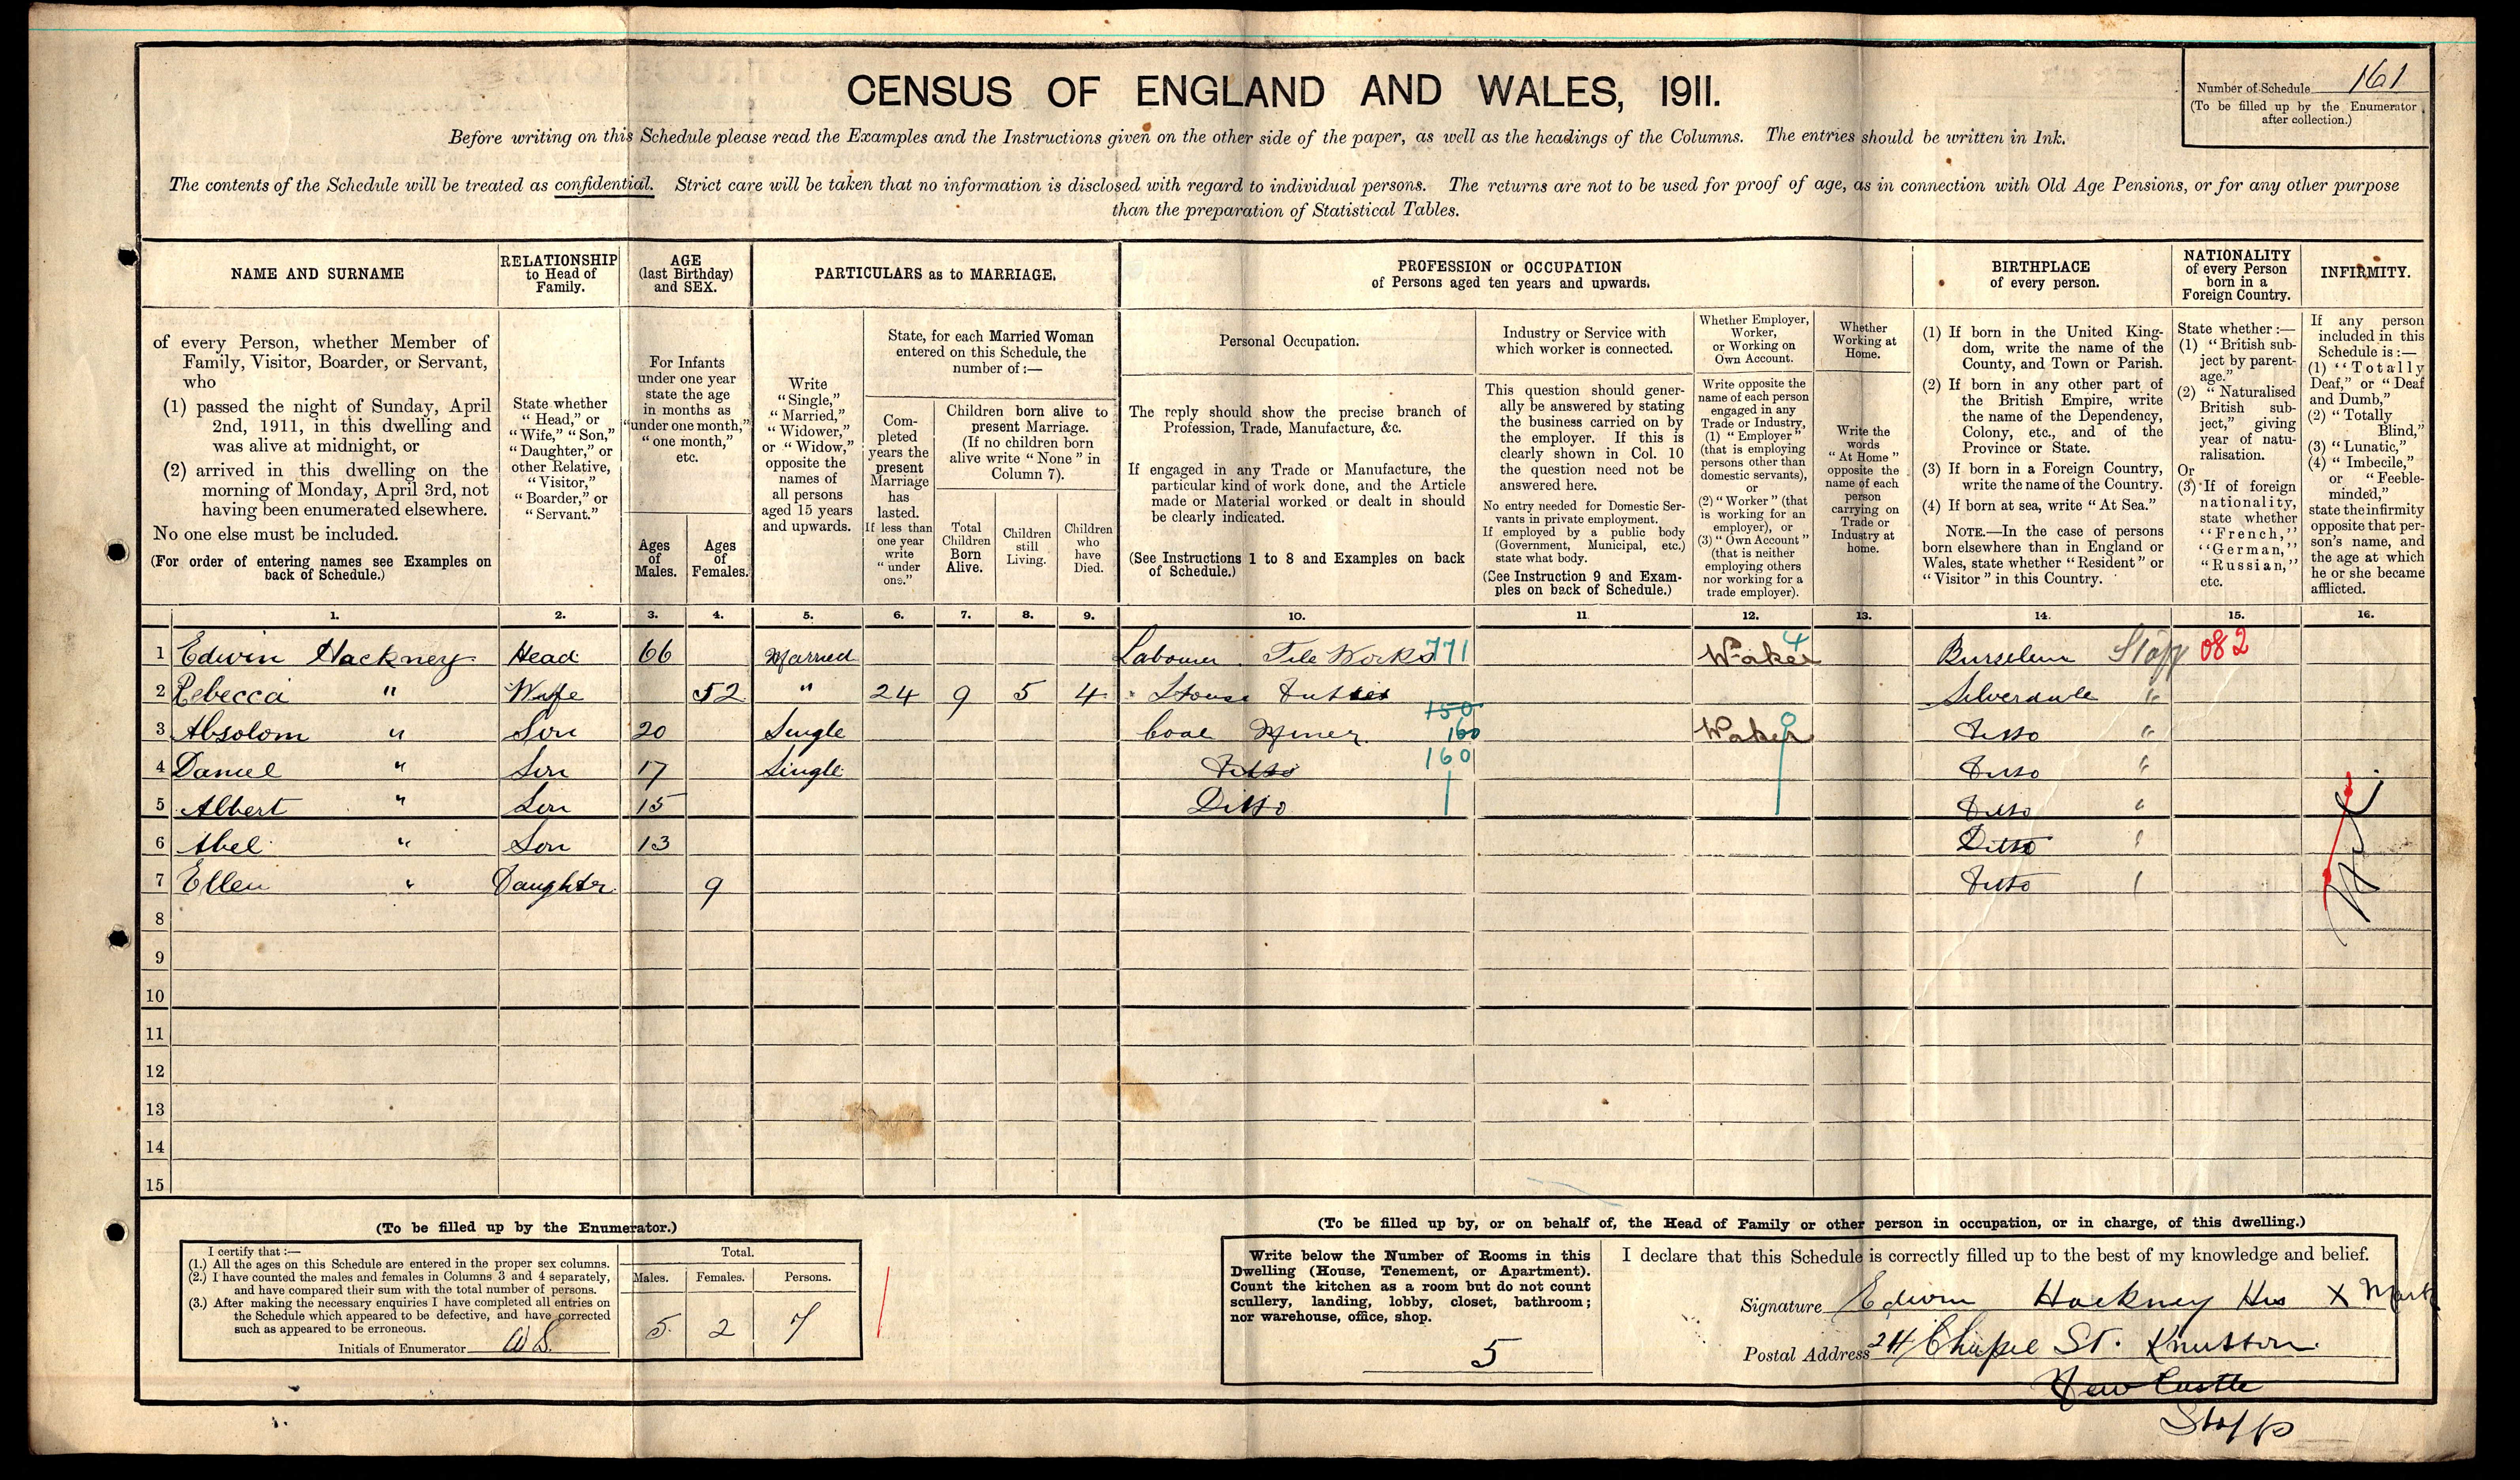 CENSUS OF ENGLAND AND WALES, 1911.
Number of Schedule 161
(To be filled up by the Enumerator after collection.)
Before writing on this Schedule please read the Examples and the Instructions given on the other side of the paper, as well as the headings of the Columns. The entries should be written in Ink.
The contents of the Schedule will be treated as confidential. Strict care will be taken that no information is disclosed with regard to individual persons. The returns are not to be used for proof of age, as in connection with Old Age Pensions, or for any other purpose
than the preparation of Statistical Tables.
NAME AND SURNAME
of every Person, whether Member of
Family, Visitor, Boarder, or Servant,
who
(1) passed the night of Sunday, April
2nd, 1911, in this dwelling and
was alive at midnight, or
(2) arrived in this dwelling on the
morning of Monday, April 3rd, not
having been enumerated elsewhere.
No one else must be included.
(For order of entering names see Examples on
back of Schedule.)
RELATIONSHIP
to Head of
Family.
State whether
"Head," or
"Wife," "Son,"
"Daughter," or
other Relative,
"Visitor,"
"Boarder," or
"Servant."
AGE
(last Birthday)
and SEX.
For Infants
under one year
state the age
in months as
"under one month,"
"one month,"
etc.
Ages
of
Males.
Ages
of
Females.
PARTICULARS as to MARRIAGE.
Write
"Single,"
"Married,"
"Widower,"
or "Widow,"
opposite the
names of
all persons
aged 15 years
and upwards.
State, for each Married Woman
entered on this Schedule, the
number of:—
Com-
pleted
years the
present
Marriage
has
lasted.
If less than
one year
write
"under
one."
Children born alive to
present Marriage.
(If no children born
alive write "None" in
Column 7).
Total
Children
Born
Alive.
Children
still
Living.
Children
who
have
Died.
PROFESSION or OCCUPATION
of Persons aged ten years and upwards.
Personal Occupation.
The reply should show the precise branch of
Profession, Trade, Manufacture, &c.
If engaged in any Trade or Manufacture, the
particular kind of work done, and the Article
made or Material worked or dealt in should
be clearly indicated.
(See Instructions 1 to 8 and Examples on back
of Schedule.)
Industry or Service with
which worker is connected.
This question should gener-
ally be answered by stating
the business carried on by
the employer. If this is
clearly shown in Col. 10
the question need not be
answered here.
No entry needed for Domestic Ser-
vants in private employment.
If employed by a public body
(Government, Municipal, etc.)
state what body.
(See Instruction 9 and Exam-
ples on back of Schedule.)
Whether Employer,
Worker,
or Working on
Own Account.
Write opposite the
name of each person
engaged in any
Trade or Industry,
(1) "Employer"
(that is employing
persons other than
domestic servants),
or
(2) "Worker" (that
is working for an
employer), or
(3) "Own Account"
(that is neither
employing others
nor working for a
trade employer).
Whether
Working at
Home.
Write the
words
"At Home"
opposite the
name of each
person
carrying on
Trade or
Industry at
home.
BIRTHPLACE
of every person.
(1) If born in the United King-
dom, write the name of the
County, and Town or Parish.
(2) If born in any other part of
the British Empire, write
the name of the Dependency,
Colony, etc., and of the
Province or State.
(3) If born in a Foreign Country,
write the name of the Country.
(4) If born at sea, write "At Sea."
NOTE.—In the case of persons
born elsewhere than in England or
Wales, state whether "Resident" or
"Visitor" in this Country.
NATIONALITY
of every Person
born in a
Foreign Country.
State whether:—
(1) "British sub-
ject by parent-
age."
(2) "Naturalised
British sub-
ject," giving
year of natu-
ralisation.
Or
(3) If of foreign
nationality,
state whether
"French,"
"German,"
"Russian,"
etc.
INFIRMITY.
If any person
included in this
Schedule is:—
(1) "Totally
Deaf," or "Deaf
and Dumb,"
(2) "Totally
Blind,"
(3) "Lunatic,"
(4) "Imbecile,"
or "Feeble-
minded,"
state the infirmity
opposite that per-
son's name, and
the age at which
he or she became
afflicted.
1. 2. 3. 4. 5. 6. 7. 8. 9. 10. 11. 12. 13. 14. 15. 16.
1 Edwin Hackney Head 66 Married Labourer Tile Works 771 Worker 4 Burselem Staff 082
2 Rebecca " Wife 52 " 24 9 5 4 House Duties Silverdale "
3 Absolom " Son 20 Single Coal Miner 150 160 Worker 9 Ditto "
4 Daniel " Son 17 Single Ditto 160 Ditto "
5 Albert " Son 15 Ditto Ditto "
6 Abel " Son 13 Ditto "
7 Ellen " Daughter 9 Ditto "
8
9
10
11
12
13
14
15
(To be filled up by the Enumerator.)
I certify that:—
(1.) All the ages on this Schedule are entered in the proper sex columns.
(2.) I have counted the males and females in Columns 3 and 4 separately,
and have compared their sum with the total number of persons.
(3.) After making the necessary enquiries I have completed all entries on
the Schedule which appeared to be defective, and have corrected
such as appeared to be erroneous.
Initials of Enumerator WS.
Total.
Males. Females. Persons.
5 2 7
(To be filled up by, or on behalf of, the Head of Family or other person in occupation, or in charge, of this dwelling.)
Write below the Number of Rooms in this
Dwelling (House, Tenement, or Apartment).
Count the kitchen as a room but do not count
scullery, landing, lobby, closet, bathroom;
nor warehouse, office, shop.
5
I declare that this Schedule is correctly filled up to the best of my knowledge and belief.
Signature Edwin Hackney His X Mark
Postal Address 24 Chapel St. Knutton
New Castle
Staffs